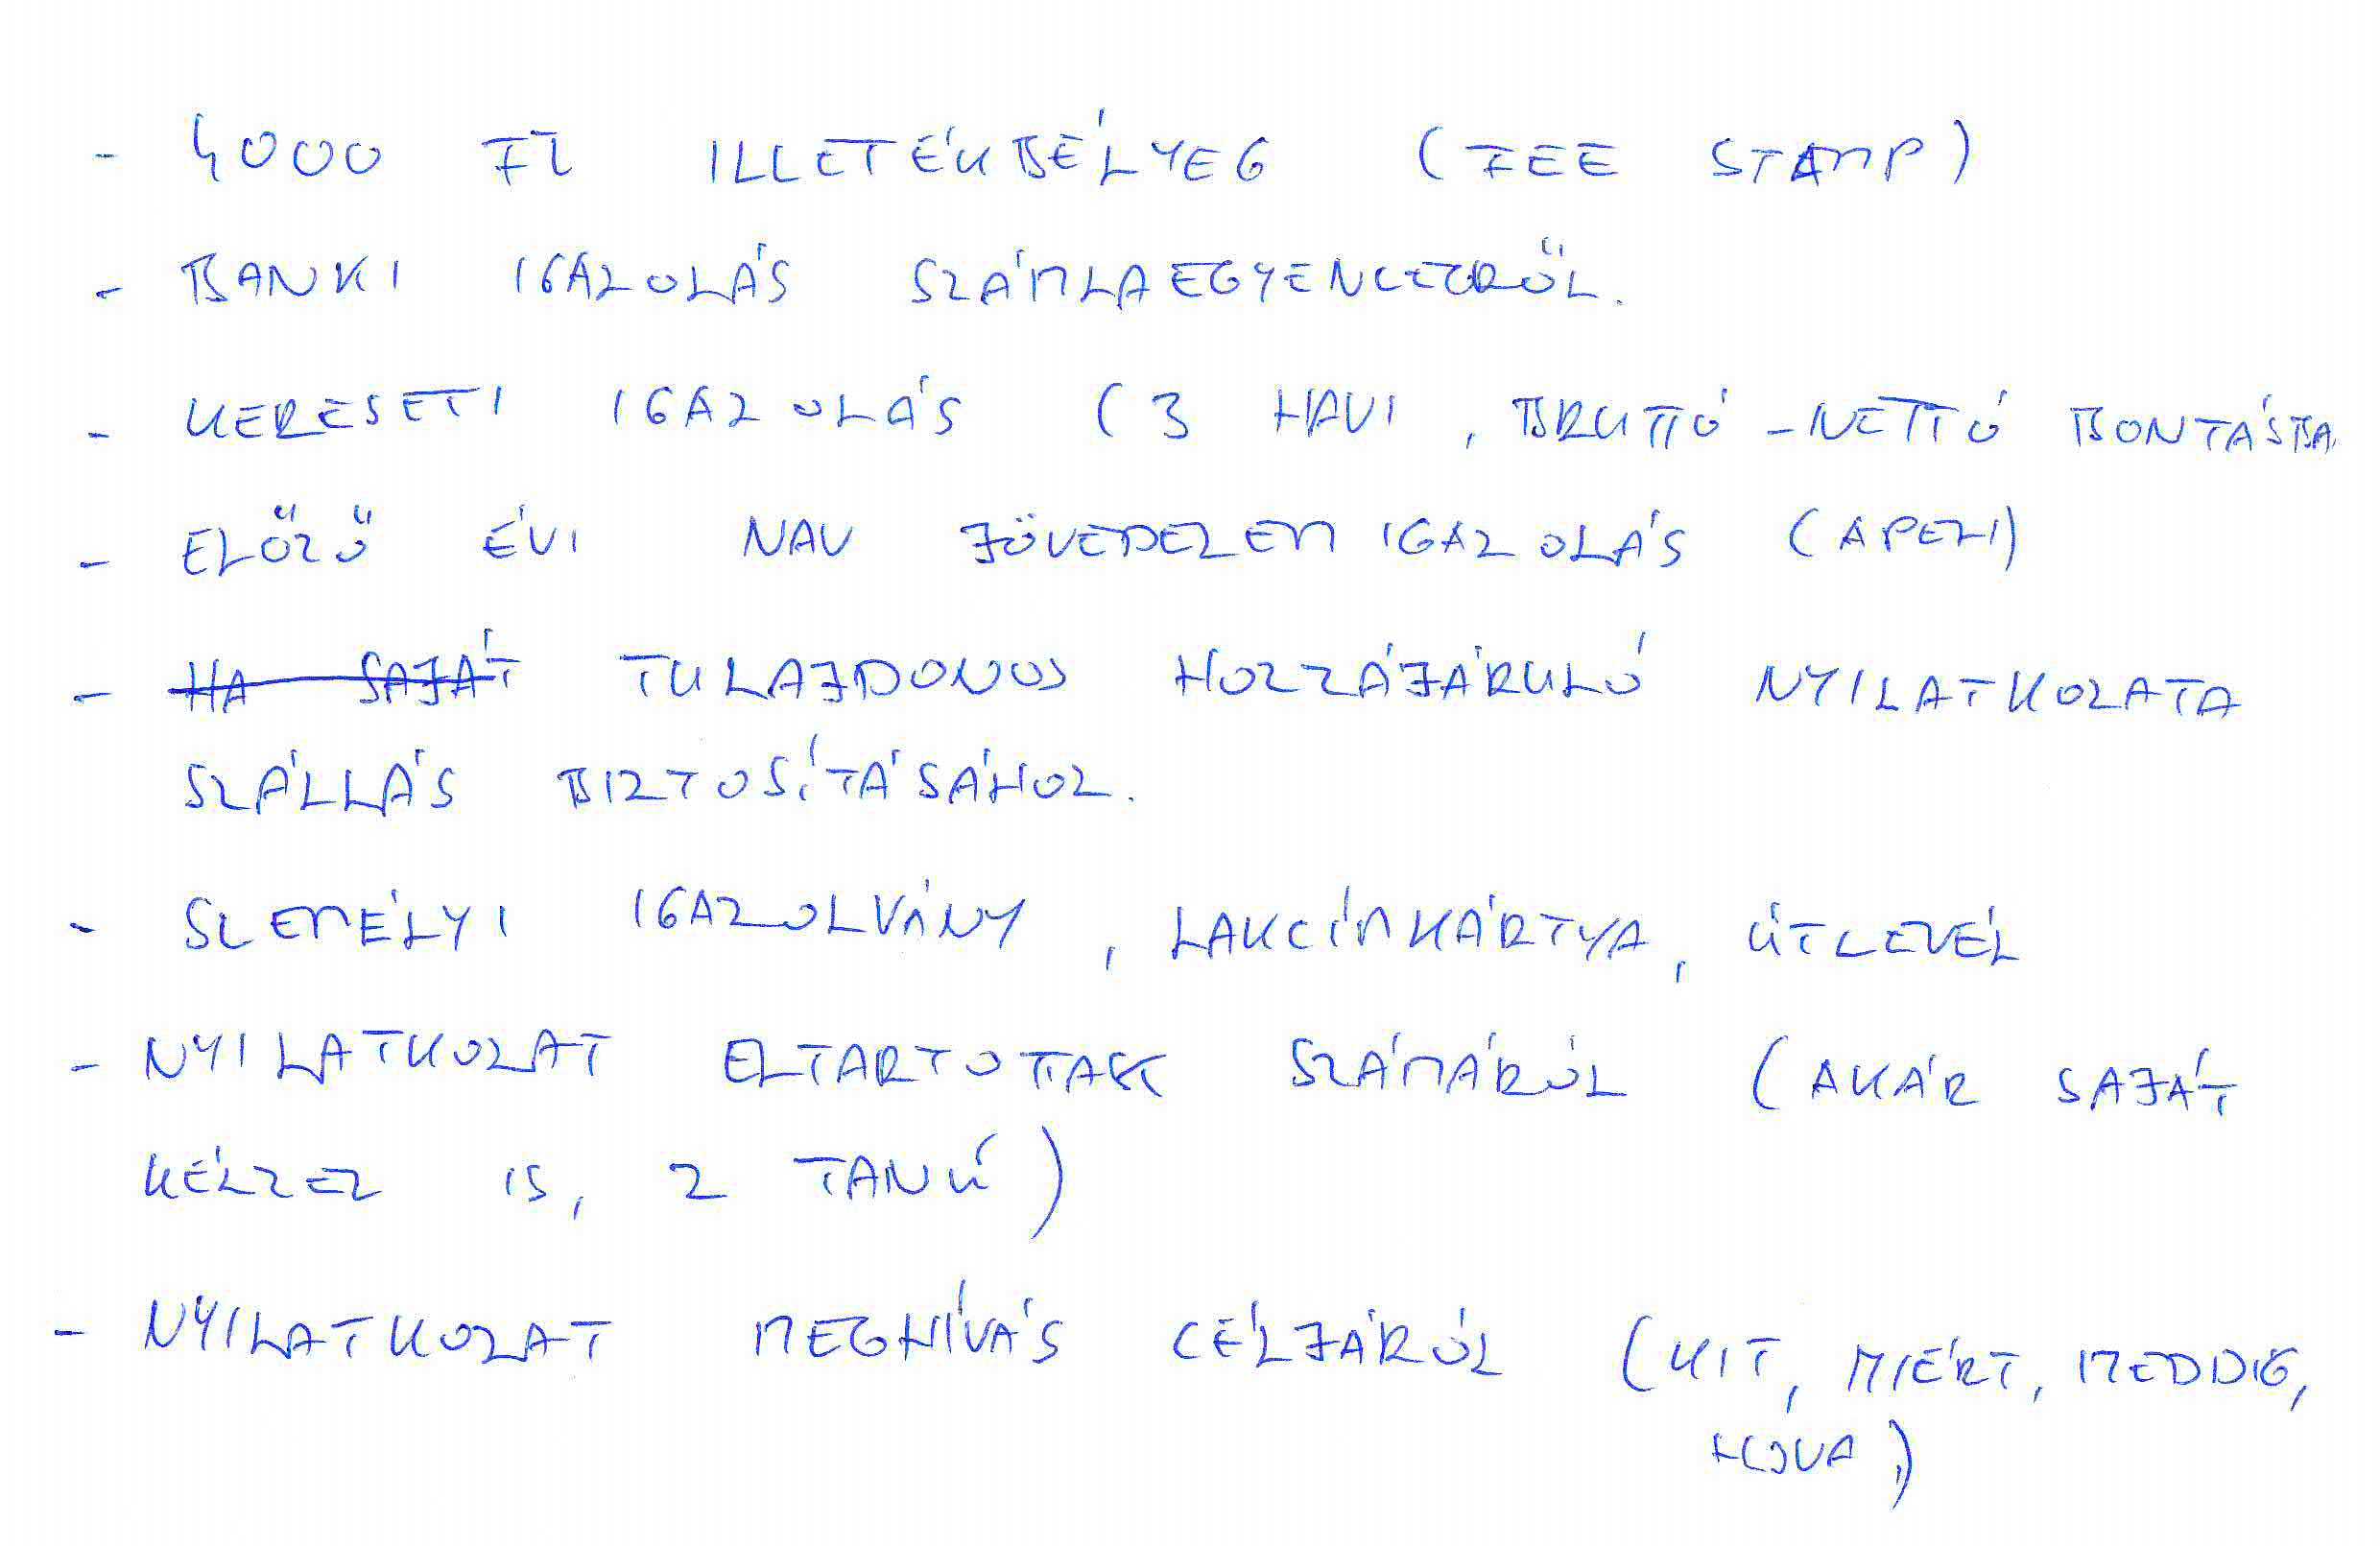 - 4000 Ft ILLETÉKBÉLYEG (FEE STAMP)
- BANKI IGAZOLÁS SZÁMLAEGYENLEGRŐL.
- KERESETI IGAZOLÁS (3 HAVI, BRUTTÓ-NETTÓ BONTÁSBA
- ELŐZŐ ÉVI NAV JÖVEDELEM IGAZOLÁS (APEH)
- HA SAJÁT TULAJDONOS HOZZÁJÁRULÓ NYILATKOZATA
SZÁLLÁS BIZTOSÍTÁSÁHOZ.
- SZEMÉLYI IGAZOLVÁNY, LAKCÍMKÁRTYA, ÚTLEVÉL
- NYILATKOZAT ELTARTOTTAK SZÁMÁRÓL (AKÁR SAJÁT
KÉZZEL IS, 2 TANÚ)
- NYILATKOZAT MEGHÍVÁS CÉLJÁRÓL (KIT, MIÉRT, MEDDIG,
HOVA)